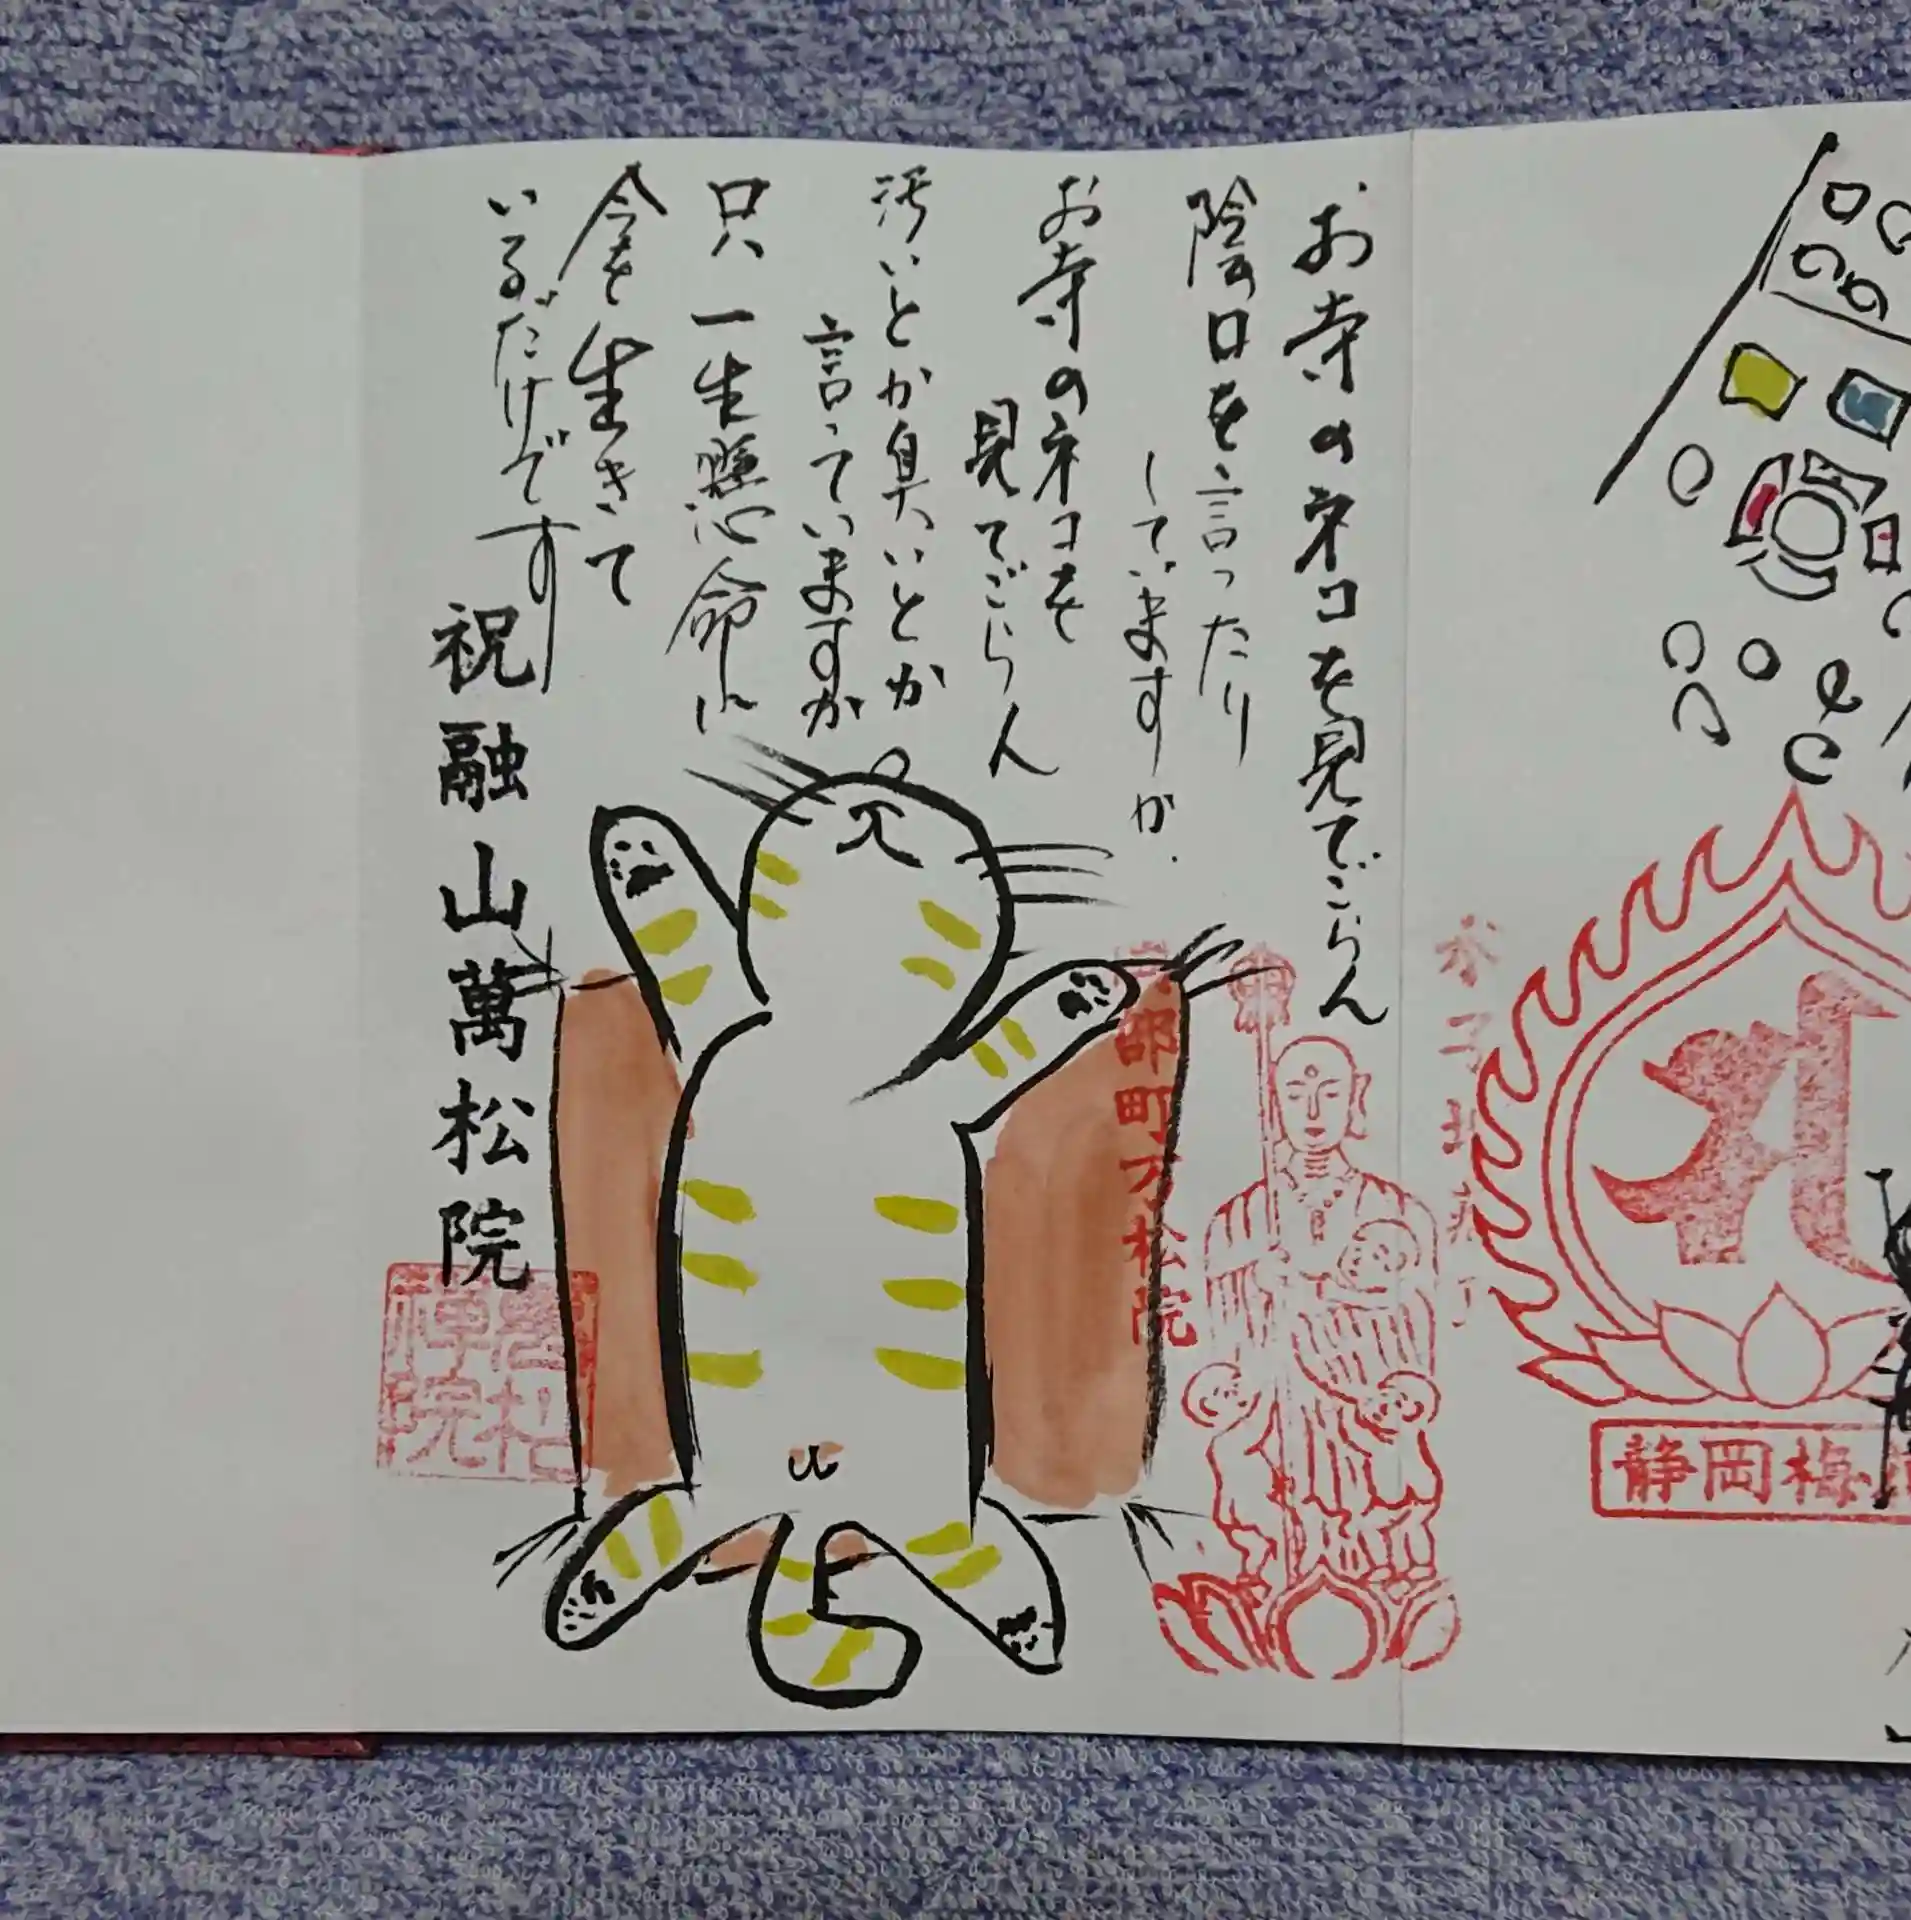 お寺のネコを見てごらん
陰口を言ったり
していますか
お寺のネコを
見てごらん
汚いとか臭いとか
言っていますか
只一生懸命に
今を生きて
いるだけです
祝融山萬松院
部町万松院
萬松
禅院
静岡梅